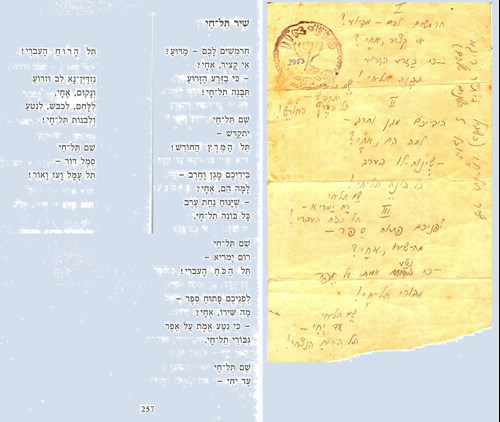 שִׁיר תֵּל־חַי
חֶרְמֵשִׁים לָכֶם – מַדּוּעַ?
אֵי קָצִיר, אֶחָי?
– כִּי בְּזֶרַע הַזָּרוּעַ
תִּבָּנֶה תֵּל־חָי!
שֵׁם תֵּל־חַי
יִתְקַדֵּשׁ –
תֵּל הַמֶּרֶץ הַחוֹרֵשׁ!
– בִּידֵיכֶם מָגֵן וָחֶרֶב –
לָמָּה הֵם, אֶחָי?
– שֶׁיָּנוּחַ נַחַת עֶרֶב
כָּל בּוֹנֵה תֵל־חָי.
שֵׁם תֵּל־חַי
רוֹם יַמְרִיא –
תֵּל הַכֹּחַ הָעִבְרִי!
לִפְנֵיכֶם פָּתוּחַ סֵפֶר –
מַה שִּׁירוֹ, אֶחָי?
– כִּי נִטַּע אֱמֶת עַל אֵפֶר
גִּבּוֹרֵי תֵל־חָי.
שֵׁם תֵּל־חַי
עַד יְחִי –
תֵּל הָרוּחַ הָעִבְרִי!
נְזַדַּיֵּן־נָא לֵב וּזְרוֹעַ
וְנָקוּם, אֶחָי,
לִלְחֹם, לִכְבֹּשׁ, לִנְטֹעַ
וְלִבְנוֹת תֵּל־חָי!
שֵׁם תֵּל־חַי
סֵמֶל דּוֹר –
תֵּל עָמָל וָעֹז וָאוֹר!
257
I
חרמשים לכם – מדוע?
אי קציר, אחי?
– כי בזרע הזרוע
תבנה תל־חי!
2053
II
בידיכם מגן וחרב –
למה הם, אחי?
כל בונה תל־חי!
שם תל־חי
רום ימריא –
תל הכח העברי!
III
לפניכם פתוח ספר –
מה שירו, אחי?
– כי נטע אמת על אפר
גבורי תל־חי!
שם תל־חי
עד יחי –